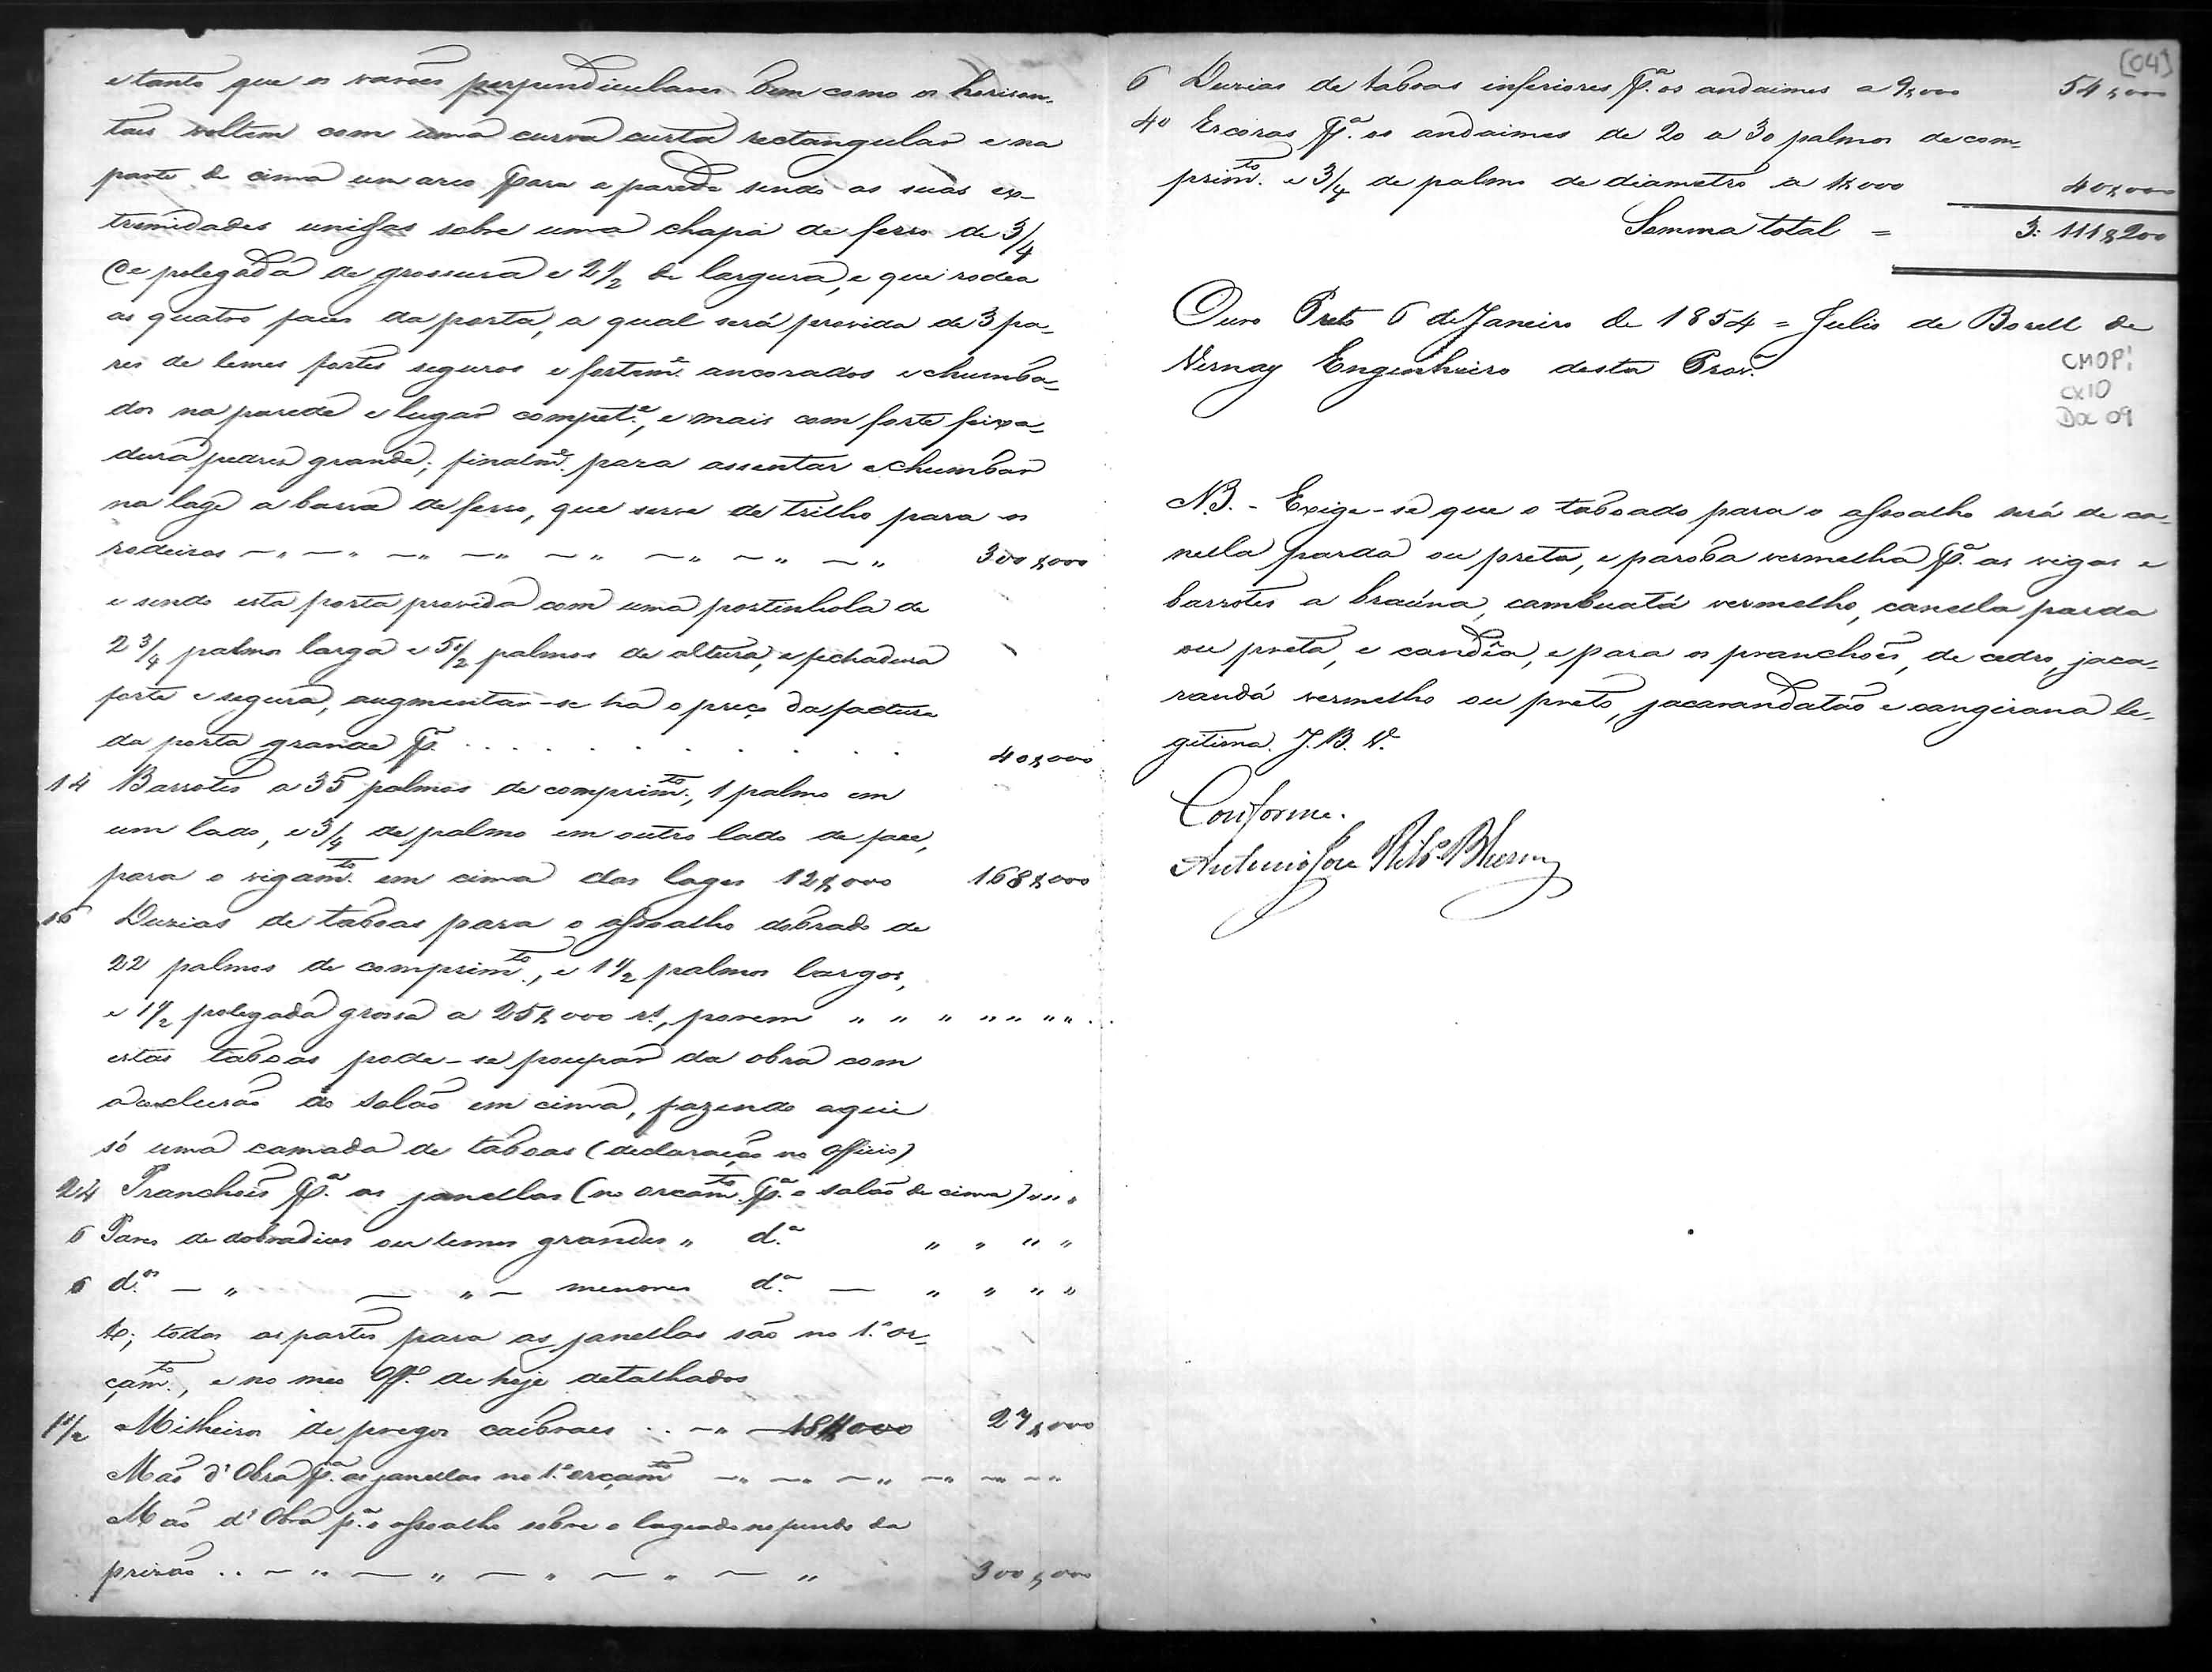 e tanto que os varoes perpendiculares bem como os horison-
taes voltem com uma curva curta rectangular e na
parte de cima um arco para a parede sendo as suas ex-
tremidades unidas sobre uma chapa de ferro de 3/4
de polegada de grossura e 2 1/2 de largura, e que rodea
as quatro faces da porta, a qual será provida de 3 pa-
res de lemes fortes seguros e fortem.e ancorados e chumba-
dos na parede e lugar compet.e, e mais com forte feixa-
dura pedres grande; finalm.e para assentar e chumbar
na lage a barra de ferro, que serve de trilho para os
rodeiros — " — " — " — " — " — " — " — " 300$000
e sendo esta porta provida com uma portinhola de
2 3/4 palmos larga e 5 1/2 palmos de altura, e fechadura
forte e segura, augmentar-se ha o preço da factura
da porta grande p.r . . . . . . . . 40$000
14 Barrotes a 35 palmos de comprim.to, 1 palmo em
um lado, e 3/4 de palmo em outro lado de face,
para o vigam.to em cima das lages 12$000 168$000
16 Duzias de taboas para o assoalho dobrado de
22 palmos de comprim.to, e 1 1/2 palmos largos,
e 1 1/2 polegada grossa a 25$000 rs, porem " " " " " " "
estas taboas pode-se poupar da obra com
do salão em cima, fazendo aqui
só uma camada de taboas (declaração no officio)
24 Pranchões p.a as janellas (no orcam.to p.a o salão de cima) " " "
6 Pares de dobradices ou lemes grandes " d.a " " " "
6 d.os — " — " — menores d.a — " " " "
&; todas as partes para as janellas são no 1.o or-
çam.to, e no meo Off.o de hoje detalhados
1 1/2 Milheiros de pregos caibraes .. — " — 18$000 27$000
Mão d'Obra p.a as janellas no 1.o orçam.to — " — " — " — " — " — "
Mão d'Obra p.a o assoalho sobre o lageado no fundo da
prizão .. — " — " — " — " — " 300$000
[04]
6 Duzias de taboas inferiores p.a os andaimes a 9$000 54$000
40 Escoras p.a os andaimes de 20 a 30 palmos de com-
prim.to e 3/4 de palmo de diametro a 1$000 40$000
Somma total = 3:111$200
Ouro Preto 6 de Janeiro de 1854 = Julio de Borell de
Vernay Engenheiro desta Prov.a
CMOP!
CX10
Doc 09
N.B. - Exige-se que o taboado para o assoalho será de ca-
nella parda ou preta, e paroba vermelha p.a as vigas e
barrotes a braúna, cambuatá vermelho, canella parda
ou preta, e candêa, e para os pranchoes, de cedro, jaca-
randá vermelho ou preto, jacarandatão e cangirana le-
gitima. J. B. V.
Conforme.
Antonio Jose Rib.o Bhering